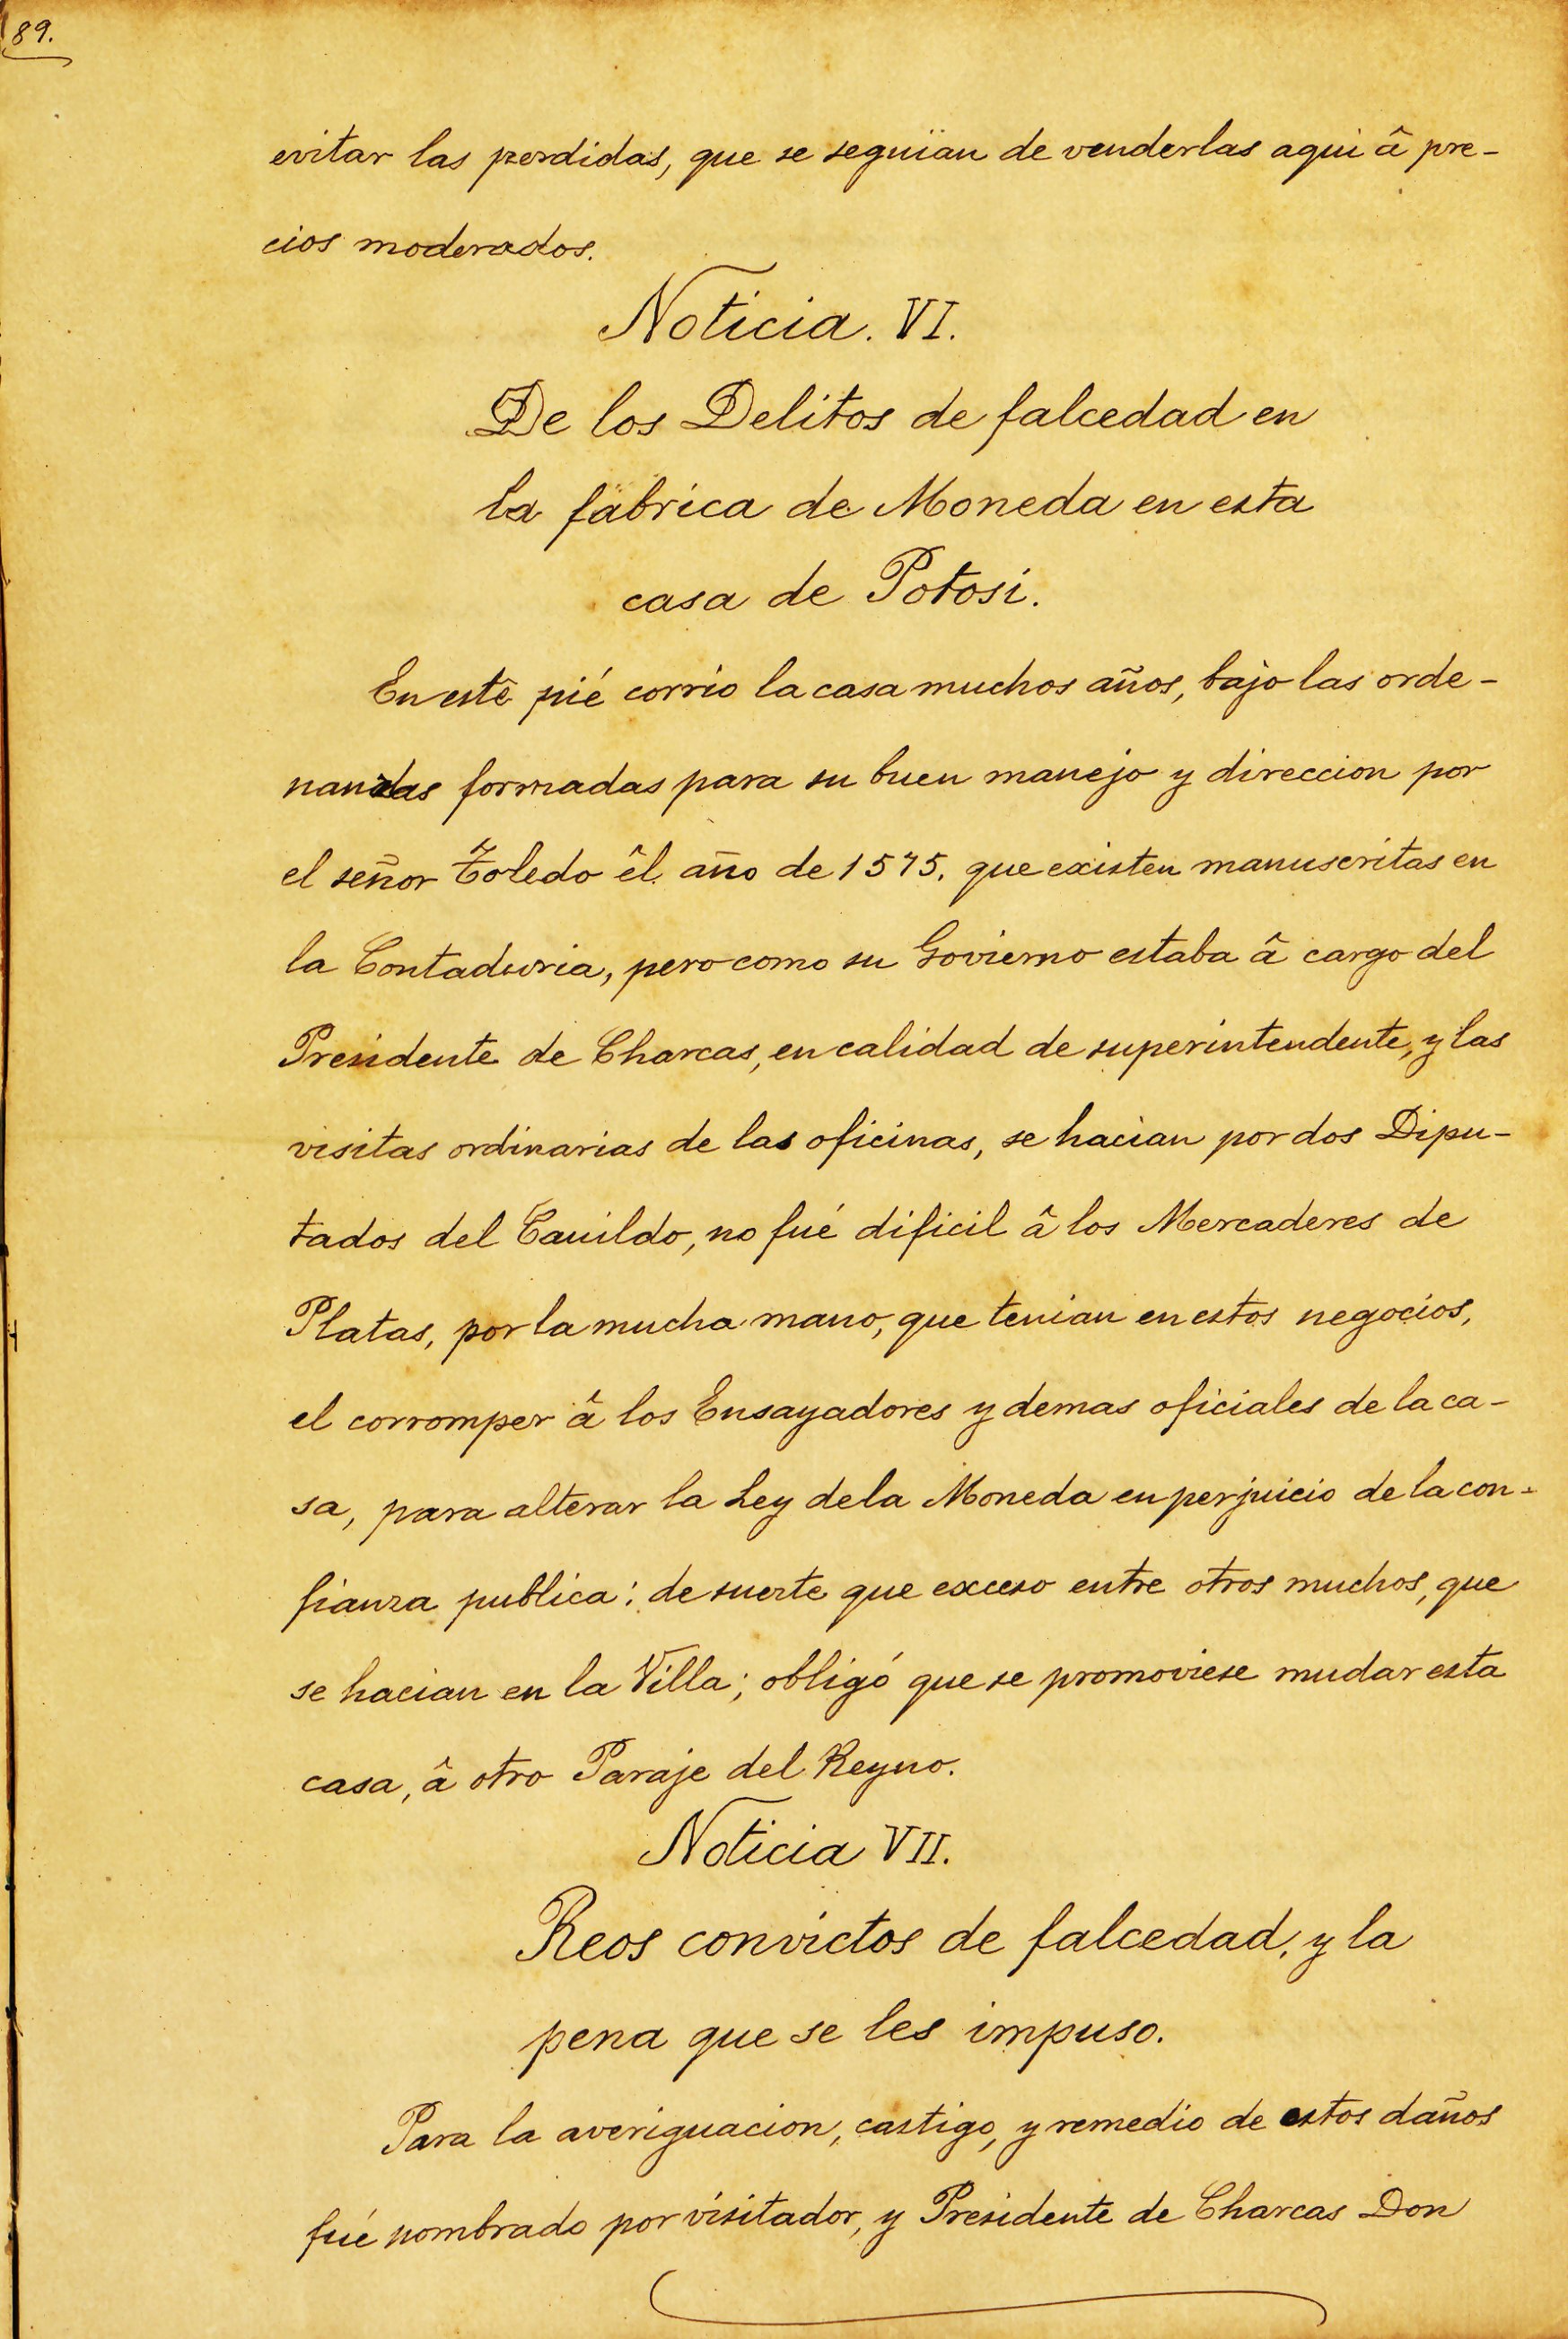 89.
evitar las perdidas, que se seguïan de venderlas aqui â pre-
cios moderados.
Noticia. VI.
De los Delitos de falcedad en
la fäbrica de Moneda en esta
casa de Potosi.
En estê pié corrio la casa muchos años, bajo las orde-
nanzas formadas para su buen manejo y direccion por
el señor Toledo êl año de 1575. que existen manuscritas en
la Contaduria, pero como su Govierno estaba â cargo del
Presidente de Charcas, en calidad de superintendente, y las
visitas ordinarias de las oficinas, se hacian por dos Dipu-
tados del Cauildo, no fué dificil â los Mercaderes de
Platas, por la mucha mano, que tenian en estos negocios,
el corromper â los Ensayadores y demas oficiales de la ca-
sa, para alterar la Ley dela Moneda en perjuicio de la con-
fianza publica: de suerte que exceso entre otros muchos, que
se hacian en la Villa; obligó que se promoviese mudar esta
casa, â otro Paraje del Reyno.
Noticia VII.
Reos convictos de falcedad, y la
pena que se les impuso.
Para la averiguacion, castigo, y remedio de estos daños
fué nombrado por visitador, y Presidente de Charcas Don